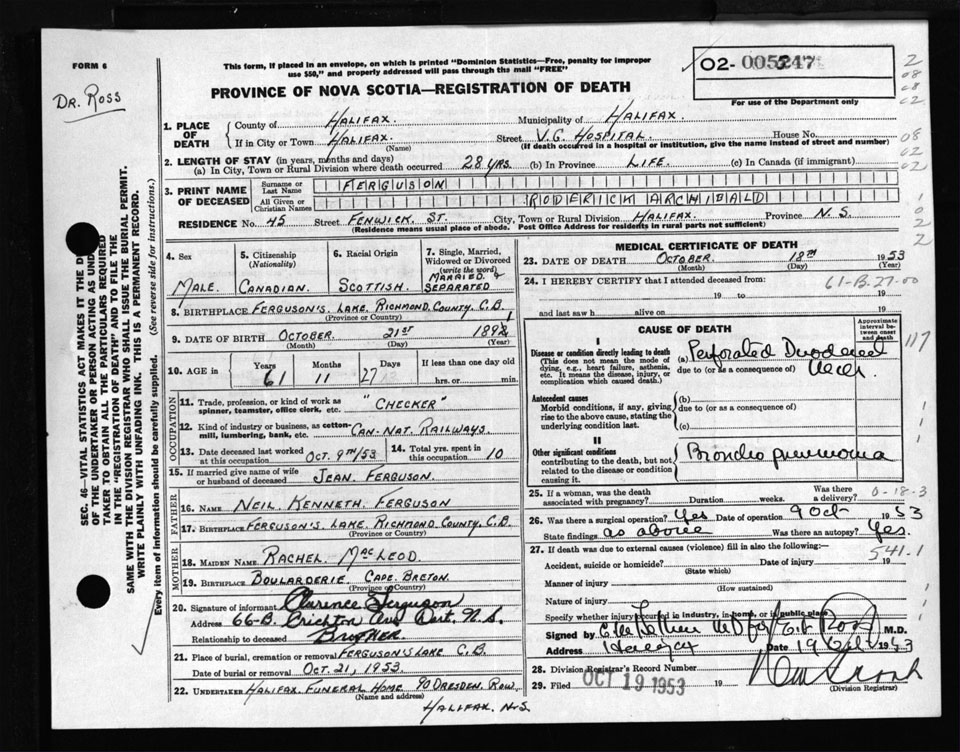 FORM 6
This form, if placed in an envelope, on which is printed "Dominion Statistics—Free, penalty for improper
use $50," and properly addressed will pass through the mail "FREE"
PROVINCE OF NOVA SCOTIA—REGISTRATION OF DEATH
O2-
For use of the Department only
DR. ROSS
2
08
08
02
08
02
02
1
0
2
2
SEC. 46—VITAL STATISTICS ACT MAKES IT THE
OF THE UNDERTAKER OR PERSON ACTING AS
TAKER TO OBTAIN ALL THE PARTICULARS REQUIRED
IN THE "REGISTRATION OF DEATH" AND TO FILE THE
SAME WITH THE DIVISION REGISTRAR WHO SHALL ISSUE THE BURIAL PERMIT.
WRITE PLAINLY WITH UNFADING INK. THIS IS A PERMANENT RECORD.
Every item of information should be carefully supplied. (See reverse side for instructions.)
1. PLACE OF DEATH
County of HALIFAX. Municipality of HALIFAX.
If in City or Town HALIFAX. Street V.G. HOSPITAL. House No.
(Name) (If death occurred in a hospital or institution, give the name instead of street and number)
2. LENGTH OF STAY (in years, months and days)
(a) In City, Town or Rural Division where death occurred 28 YRS. (b) In Province LIFE. (c) In Canada (if immigrant)
3. PRINT NAME OF DECEASED
Surname or Last Name FERGUSON
All Given or Christian Names RODERICK ARCHIBALD
RESIDENCE No. 45 Street FENWICK ST. City, Town or Rural Division HALIFAX. Province N.S.
(Residence means usual place of abode. Post Office Address for residents in rural parts not sufficient)
4. Sex
MALE.
5. Citizenship (Nationality)
CANADIAN.
6. Racial Origin
SCOTTISH.
7. Single, Married, Widowed or Divorced (write the word)
MARRIED & SEPARATED
8. BIRTHPLACE FERGUSON'S LAKE, RICHMOND, COUNTY, C.B.
(Province or Country)
9. DATE OF BIRTH OCTOBER 21ST
(Month) (Day) (Year)
10. AGE in Years Months Days If less than one day old
61 11 27 hrs. or min.
OCCUPATION
11. Trade, profession, or kind of work as spinner, teamster, office clerk, etc. "CHECKER"
12. Kind of industry or business, as cotton-mill, lumbering, bank, etc. CAN-NAT. RAILWAYS.
13. Date deceased last worked at this occupation OCT. 9TH/53
14. Total yrs. spent in this occupation 10
15. If married give name of wife or husband of deceased JEAN FERGUSON.
FATHER
16. NAME NEIL KENNETH FERGUSON
17. BIRTHPLACE FERGUSON'S. LAKE, RICHMOND, COUNTY, C.B.
(Province or Country)
MOTHER
18. MAIDEN NAME RACHEL MACLEOD.
19. BIRTHPLACE BOULARDERIE CAPE BRETON.
(Province or Country)
20. Signature of informant Clarence Ferguson
Address 66-B. Crichton Ave Dart. N.S.
Relationship to deceased BROTHER.
21. Place of burial, cremation or removal FERGUSON'S LAKE C.B.
Date of burial or removal OCT. 21, 1953.
22. UNDERTAKER HALIFAX FUNERAL HOME 90 DRESDEN. ROW,
(Name and address)
HALIFAX, N.S.
MEDICAL CERTIFICATE OF DEATH
23. DATE OF DEATH OCTOBER. 18TH 1953
(Month) (Day) (Year)
24. I HEREBY CERTIFY that I attended deceased from: 61-B-27-00
19 to 19
and last saw h alive on 19
CAUSE OF DEATH
Approximate interval between onset and death
I
Disease or condition directly leading to death
(This does not mean the mode of dying, e.g., heart failure, asthenia, etc. It means the disease, injury, or complication which caused death.)
(a) Perforated Duodenal Ulcer.
due to (or as a consequence of)
117
Antecedent causes
Morbid conditions, if any, giving rise to the above cause, stating the underlying condition last.
(b)
due to (or as a consequence of)
(c)
II
Other significant conditions
contributing to the death, but not related to the disease or condition causing it.
Broncho pneumonia
25. If a woman, was the death associated with pregnancy? Duration weeks. Was there a delivery?
0-18-3
26. Was there a surgical operation? Yes Date of operation 9 Oct 1953
State findings as above Was there an autopsy? Yes.
27. If death was due to external causes (violence) fill in also the following:—
541.1
Accident, suicide or homicide? Date of injury 19
(State which)
Manner of injury
(How sustained)
Nature of injury
Specify whether injury occurred in industry, in home, or in public place
Signed by M.D.
Address Halifax Date 19 Oct 1953
28. Division Registrar's Record Number
29. Filed OCT 19 1953 19
(Division Registrar)